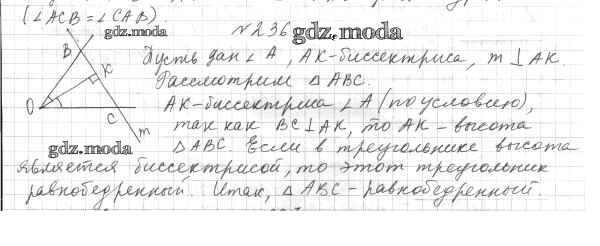 (∠ACB = ∠CAB).
gdz.moda
№236 gdz.moda
B
K
O
C
m
Пусть дан ∠A, AK-биссектриса, m ⊥ AK.
Рассмотрим △ABC.
AK-биссектриса ∠A (по условию),
так как BC ⊥ AK, то AK - высота
gdz.moda
△ABC. Если в треугольнике высота
является биссектрисой, то этот треугольник
равнобедренный. Итак, △ABC - равнобедренный.